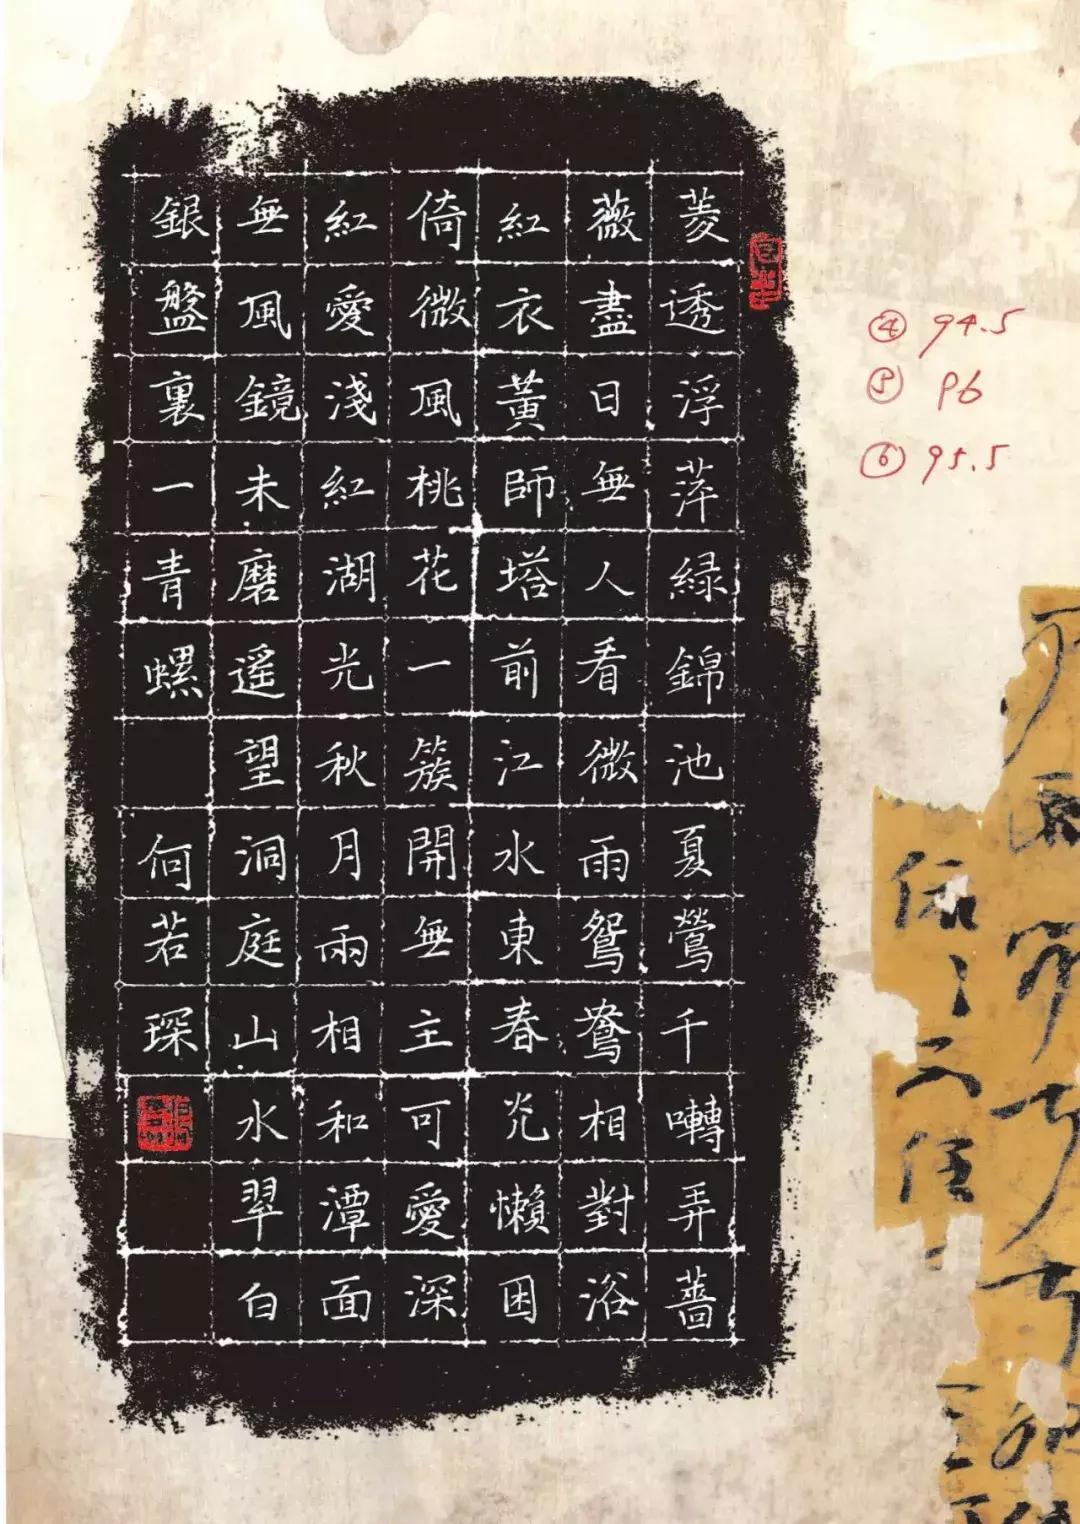 菱透浮萍緑錦池夏鶯千囀弄薔
薇盡日無人看微雨鴛鴦相對浴
紅衣黃師塔前江水東春光懶困
倚微風桃花一簇開無主可愛深
紅愛淺紅湖光秋月兩相和潭面
無風鏡未磨遥望洞庭山水翠白
銀盤裏一青螺 何若琛
④ 94.5
⑤ 96
⑥ 95.5